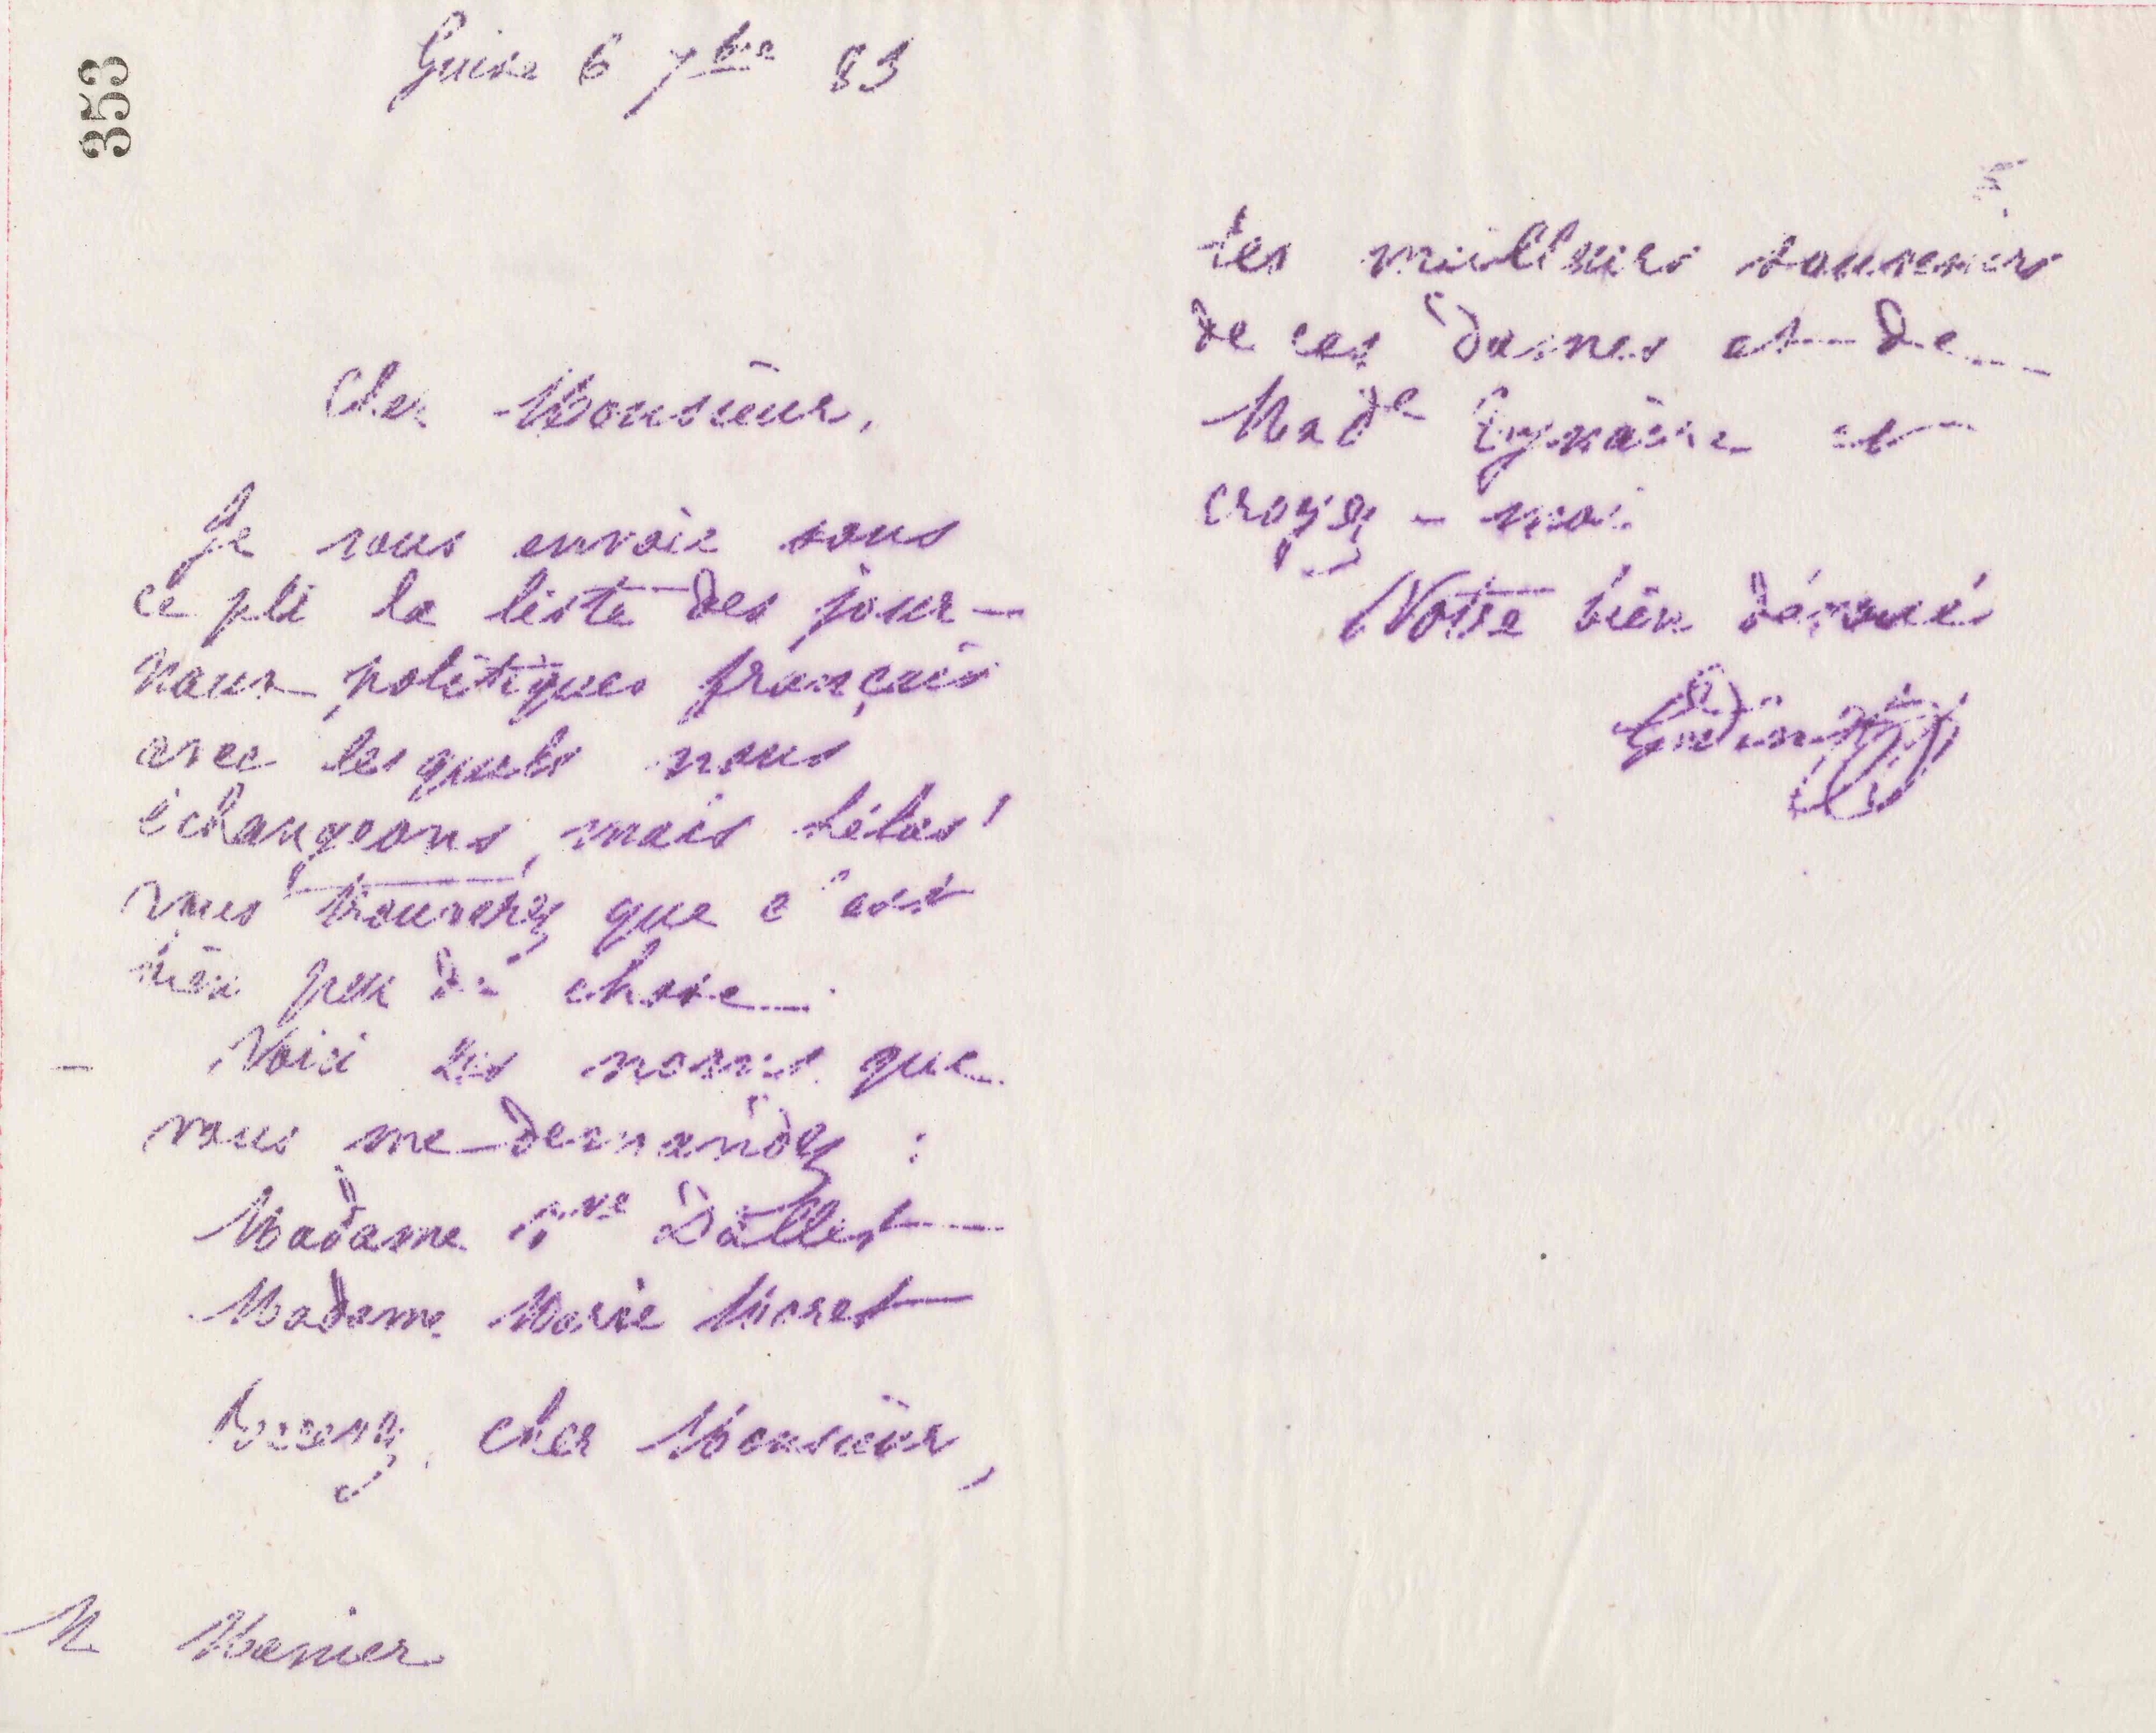 353
Guise 6 7bre 83
Cher Monsieur,
Je vous envoie sous
ce pli la liste des jour-
naux politiques français
avec lesquels nous
échangeons, mais hélas!
vous trouverez que c'est
bien peu de chose.
Voici les noms que
vous me demandez :
Madame Vve Dallet
Madame Marie Moret
Recevez, cher Monsieur,
M Manier
les meilleurs souvenirs
de ces dames et de
Made Tynaire et
croyez-moi
Votre bien dévoué
Godin